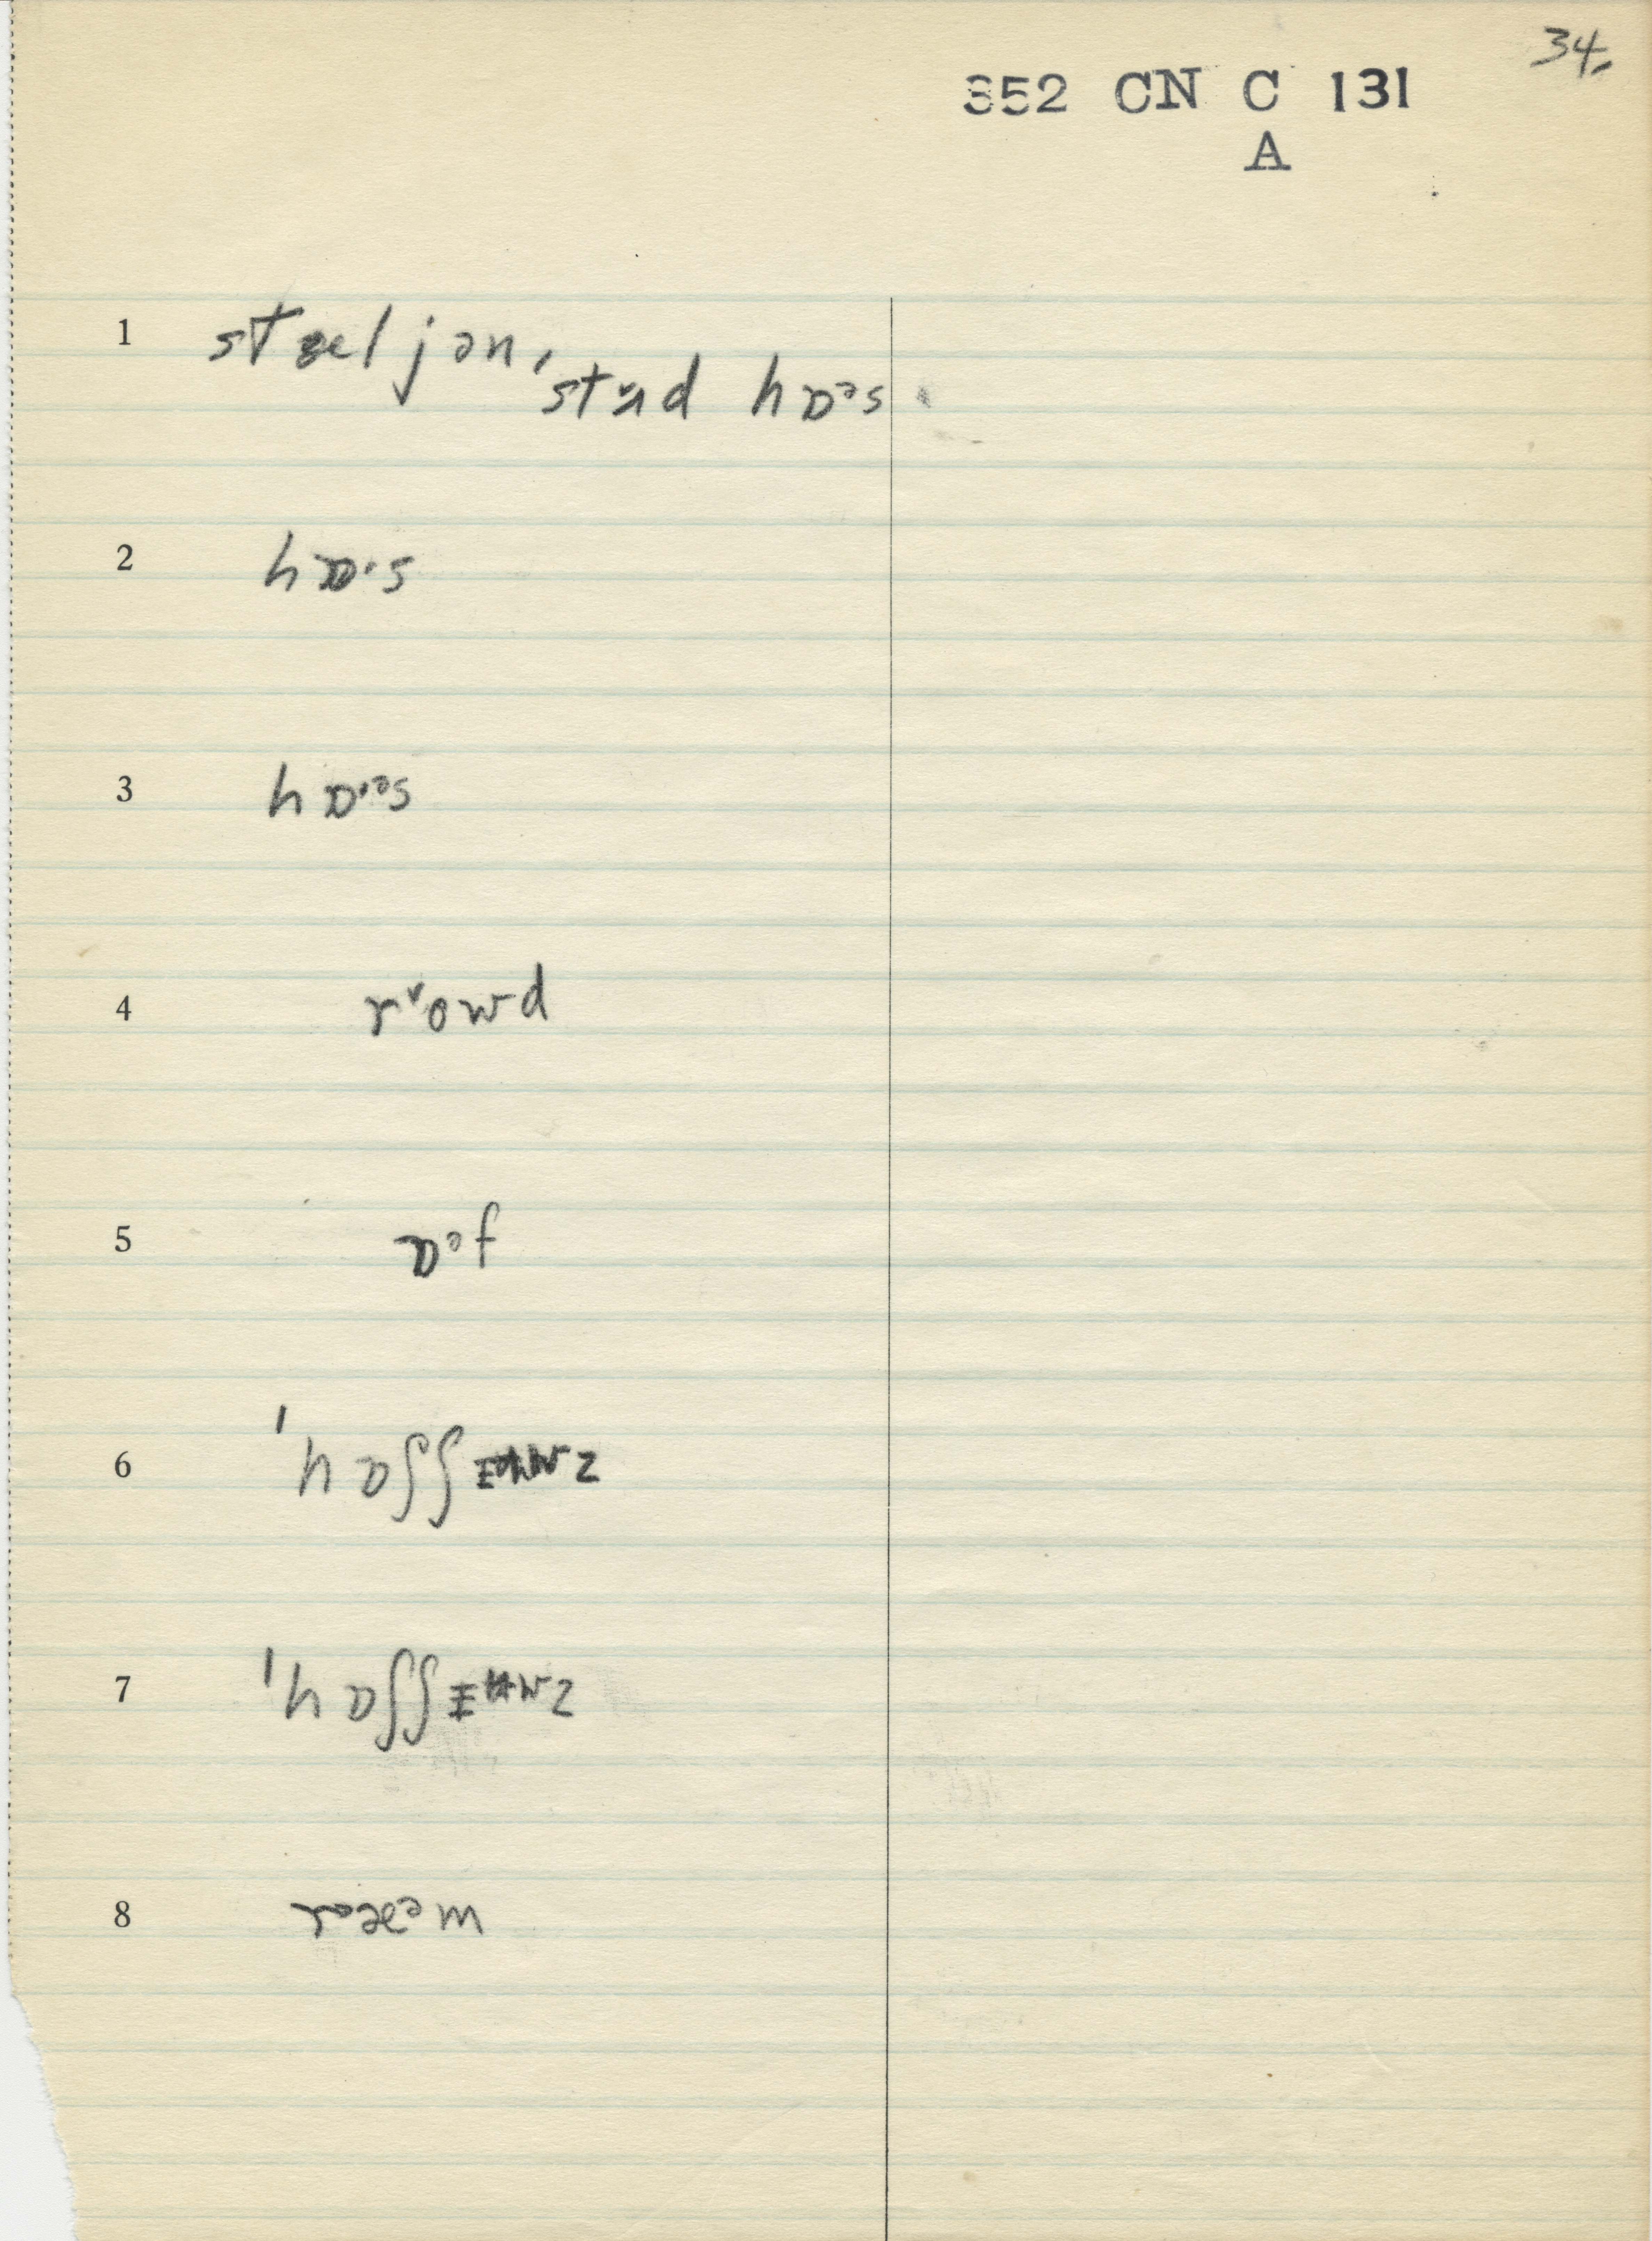 34.
352 CN C 131
A
1 stæljən, stʌ˅d hɒᵊs
2 hɒ·s
3 hɒ·ᵊs
4 r˅owd
5 ɒᵊf
6 ˈhɒʃʃ z
7 ˈhɒʃʃ z
8 rᵊæᵊm